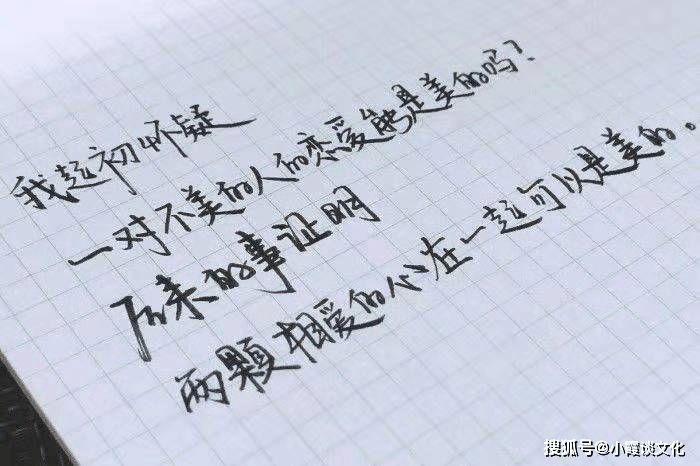 我起初怀疑
一对不美的人的恋爱能是美的吗？
后来的事证明
两颗相爱的心在一起可以是美的。
搜狐号@小霞谈文化